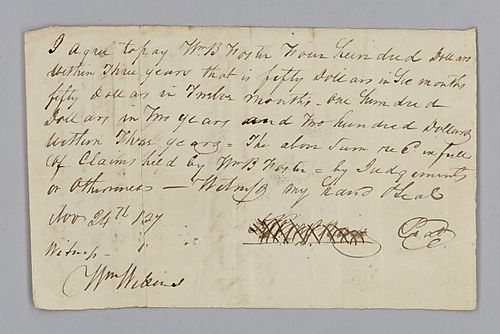 I agree to pay Wm B Foster Four hundred Dollars
Within Three years that is fifty Dollars in Six months
fifty Dollars in Twelve months - One hundred
Dollars in Two years and Two hundred Dollars
Within Three years = The above Sum rec'd in full
Of Claims held by Wm B Foster = by Judgements
or Otherwise — Witness my hand & Seal
Nov 24th 
Witness -
Wm Wilkins
Seal